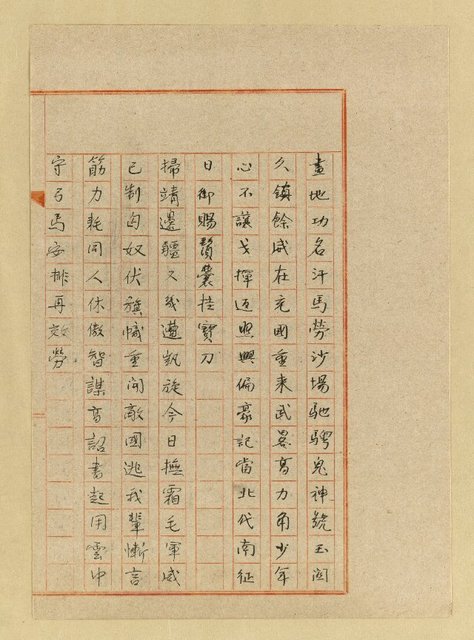 畫地功名汗馬勞沙場馳騁鬼神號玉關
久鎮餘威在充國重來武畧高力角少年
心不讓戈揮返照興偏豪記當北代南征
日御賜囊挂寶刀
掃靖邊疆又幾遭凱旋今日撫霜毛軍威
已制匈奴伏旗幟重聞敵國逃我輩慚言
筋力耗同人休傲智謀高詔書起用雲中
守弓馬安排再效勞